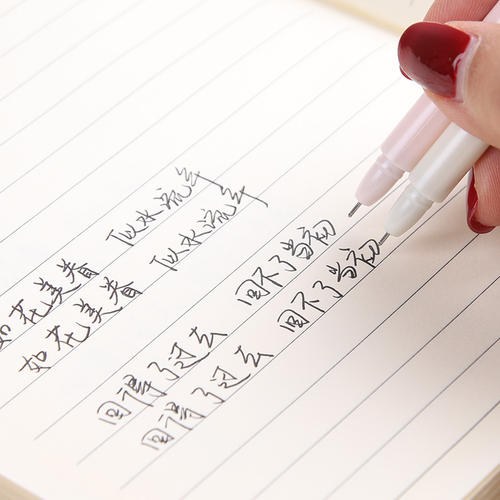 如花美眷 似水流年
如花美眷 似水流年
回得了过去 回不了当初
回得了过去 回不了当初